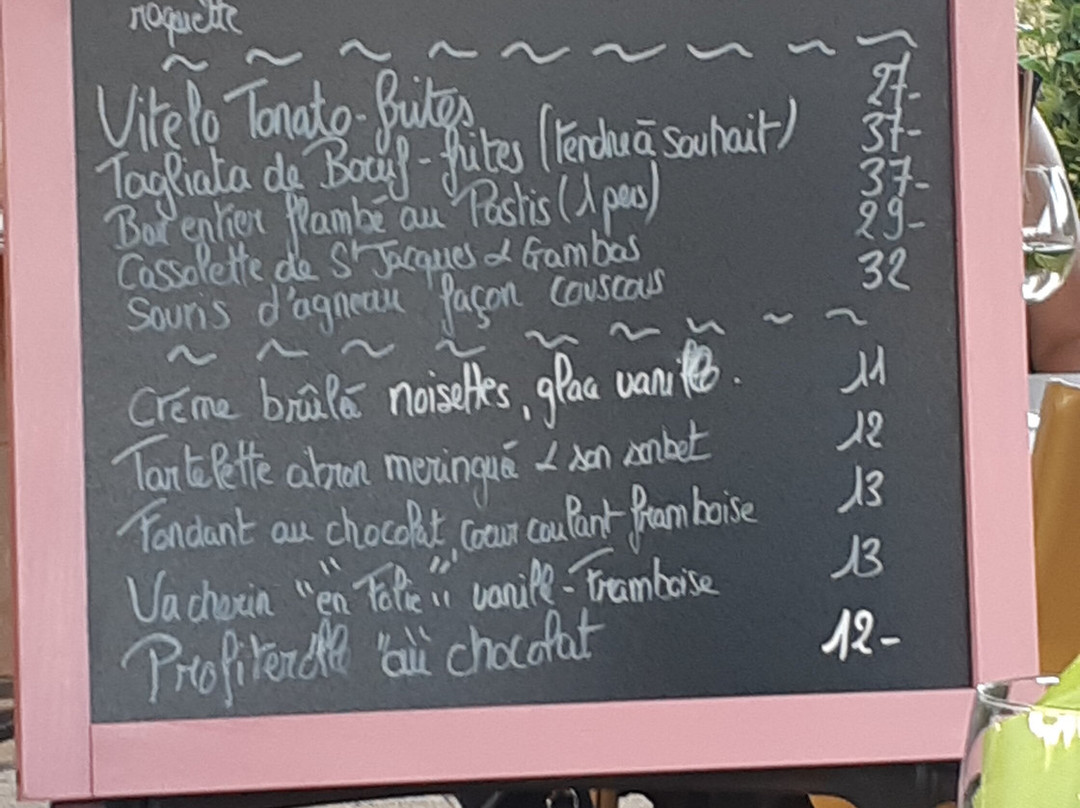 roquette
~ ~ ~ ~ ~ ~ ~ ~ ~
Vitelo Tonato - frites 27-
Tagliata de Bœuf - frites (tendre à souhait) 37-
Bar entier flambé au Pastis (1 pers) 37-
Cassolette de St Jacques & Gambas 29-
Souris d'agneau façon couscous 32
~ ~ ~ ~ ~ ~ ~ ~ ~
Crème brûlé noisettes, glace vanille. 11
Tartelette citron meringué & son sorbet 12
Fondant au chocolat, cœur coulant framboise 13
Vacherin "en Folie" vanille - Framboise 13
Profiterolle "au" chocolat 12-